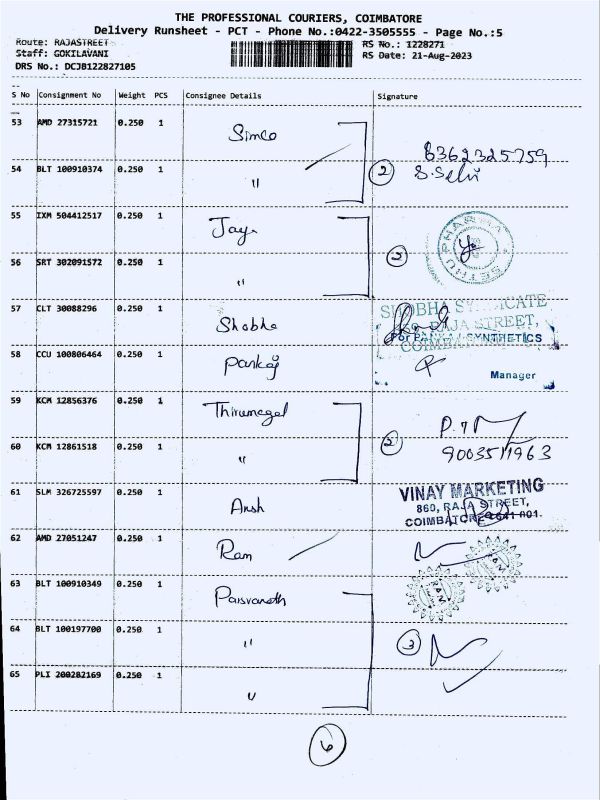 THE PROFESSIONAL COURIERS, COIMBATORE
Delivery Runsheet - PCT - Phone No.:0422-3505555 - Page No.:5
Route: RAJASTREET RS No.: 1228271
Staff: GOKILAVANI RS Date: 21-Aug-2023
DRS No.: DCJB122827105
S No Consignment No Weight PCS Consignee Details Signature
53 AMD 27315721 0.250 1 Simco
8362325759
54 BLT 100910374 0.250 1 " 2 S. Selvi
55 IXM 504412517 0.250 1 Jaya
PHARMA
SETHU
56 SRT 302091572 0.250 1 " 2
57 CLT 30088296 0.250 1 Shobha
SHOBHA SYNDICATE
59, RAJA STREET,
For PANKAJ SYNTHETICS
58 CCU 100806464 0.250 1 Pankaj
Manager
59 KCM 12856376 0.250 1 Thirumagal
60 KCM 12861518 0.250 1 " 2 9003511963
61 SLM 326725597 0.250 1 Ansh
VINAY MARKETING
860, RAJA STREET,
COIMBATORE-641 001.
62 AMD 27051247 0.250 1 Ram
RAM
RAM
63 BLT 100910349 0.250 1 Parsvanath
64 BLT 100197700 0.250 1 " 3
65 PLI 200282169 0.250 1 "
6